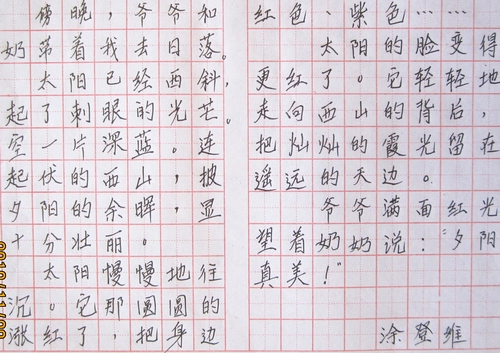 傍晚，爷爷和
奶带着我去日落。
太阳已经西斜，
起了刺眼的光芒。
空一片深蓝。连
起伏的西山，披
夕阳的余晖，显
十分壮丽。
太阳慢慢地往
沉。它那圆圆的
涨红了，把身边
红色、紫色……
太阳的脸变得
更红了。它轻轻地
走向西山的背后，
把灿灿的霞光留在
遥远的天边。
爷爷满面红光
望着奶奶说："夕阳
真美！"
涂登维